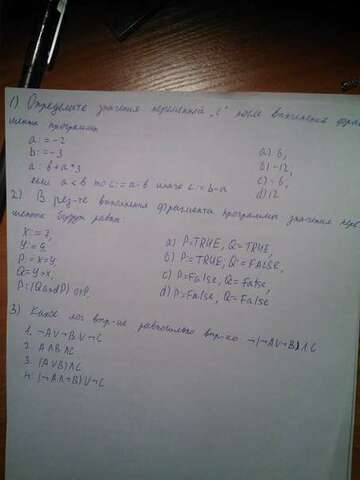 1) Определите значения переменной „c" после выполнения фраг-
мента программы
a := -2
b: = -3
a: b+a*3
если a<b то c:= a-b иначе c:= b-a
a) 6,
b) -12,
c) -6,
d) 12
2) В рез-те выполнения фрагмента программы значения пере-
менных будут равны:
X:= 2,
P:= X=Y
Q:=Y>X,
P:= (Q and P) or P.
a) P=TRUE, Q=TRUE,
b) P=TRUE, Q=FALSE,
c) P=False, Q=False,
d) P=False, Q=False
3) Какое лог выр-ие равносильно выр-ию ¬(¬A∨¬B)∧C
1. ¬A∨¬B∨¬C
2. A∧B∧C
3. (A∨B)∧C
4. (¬A∧¬B)∨¬C